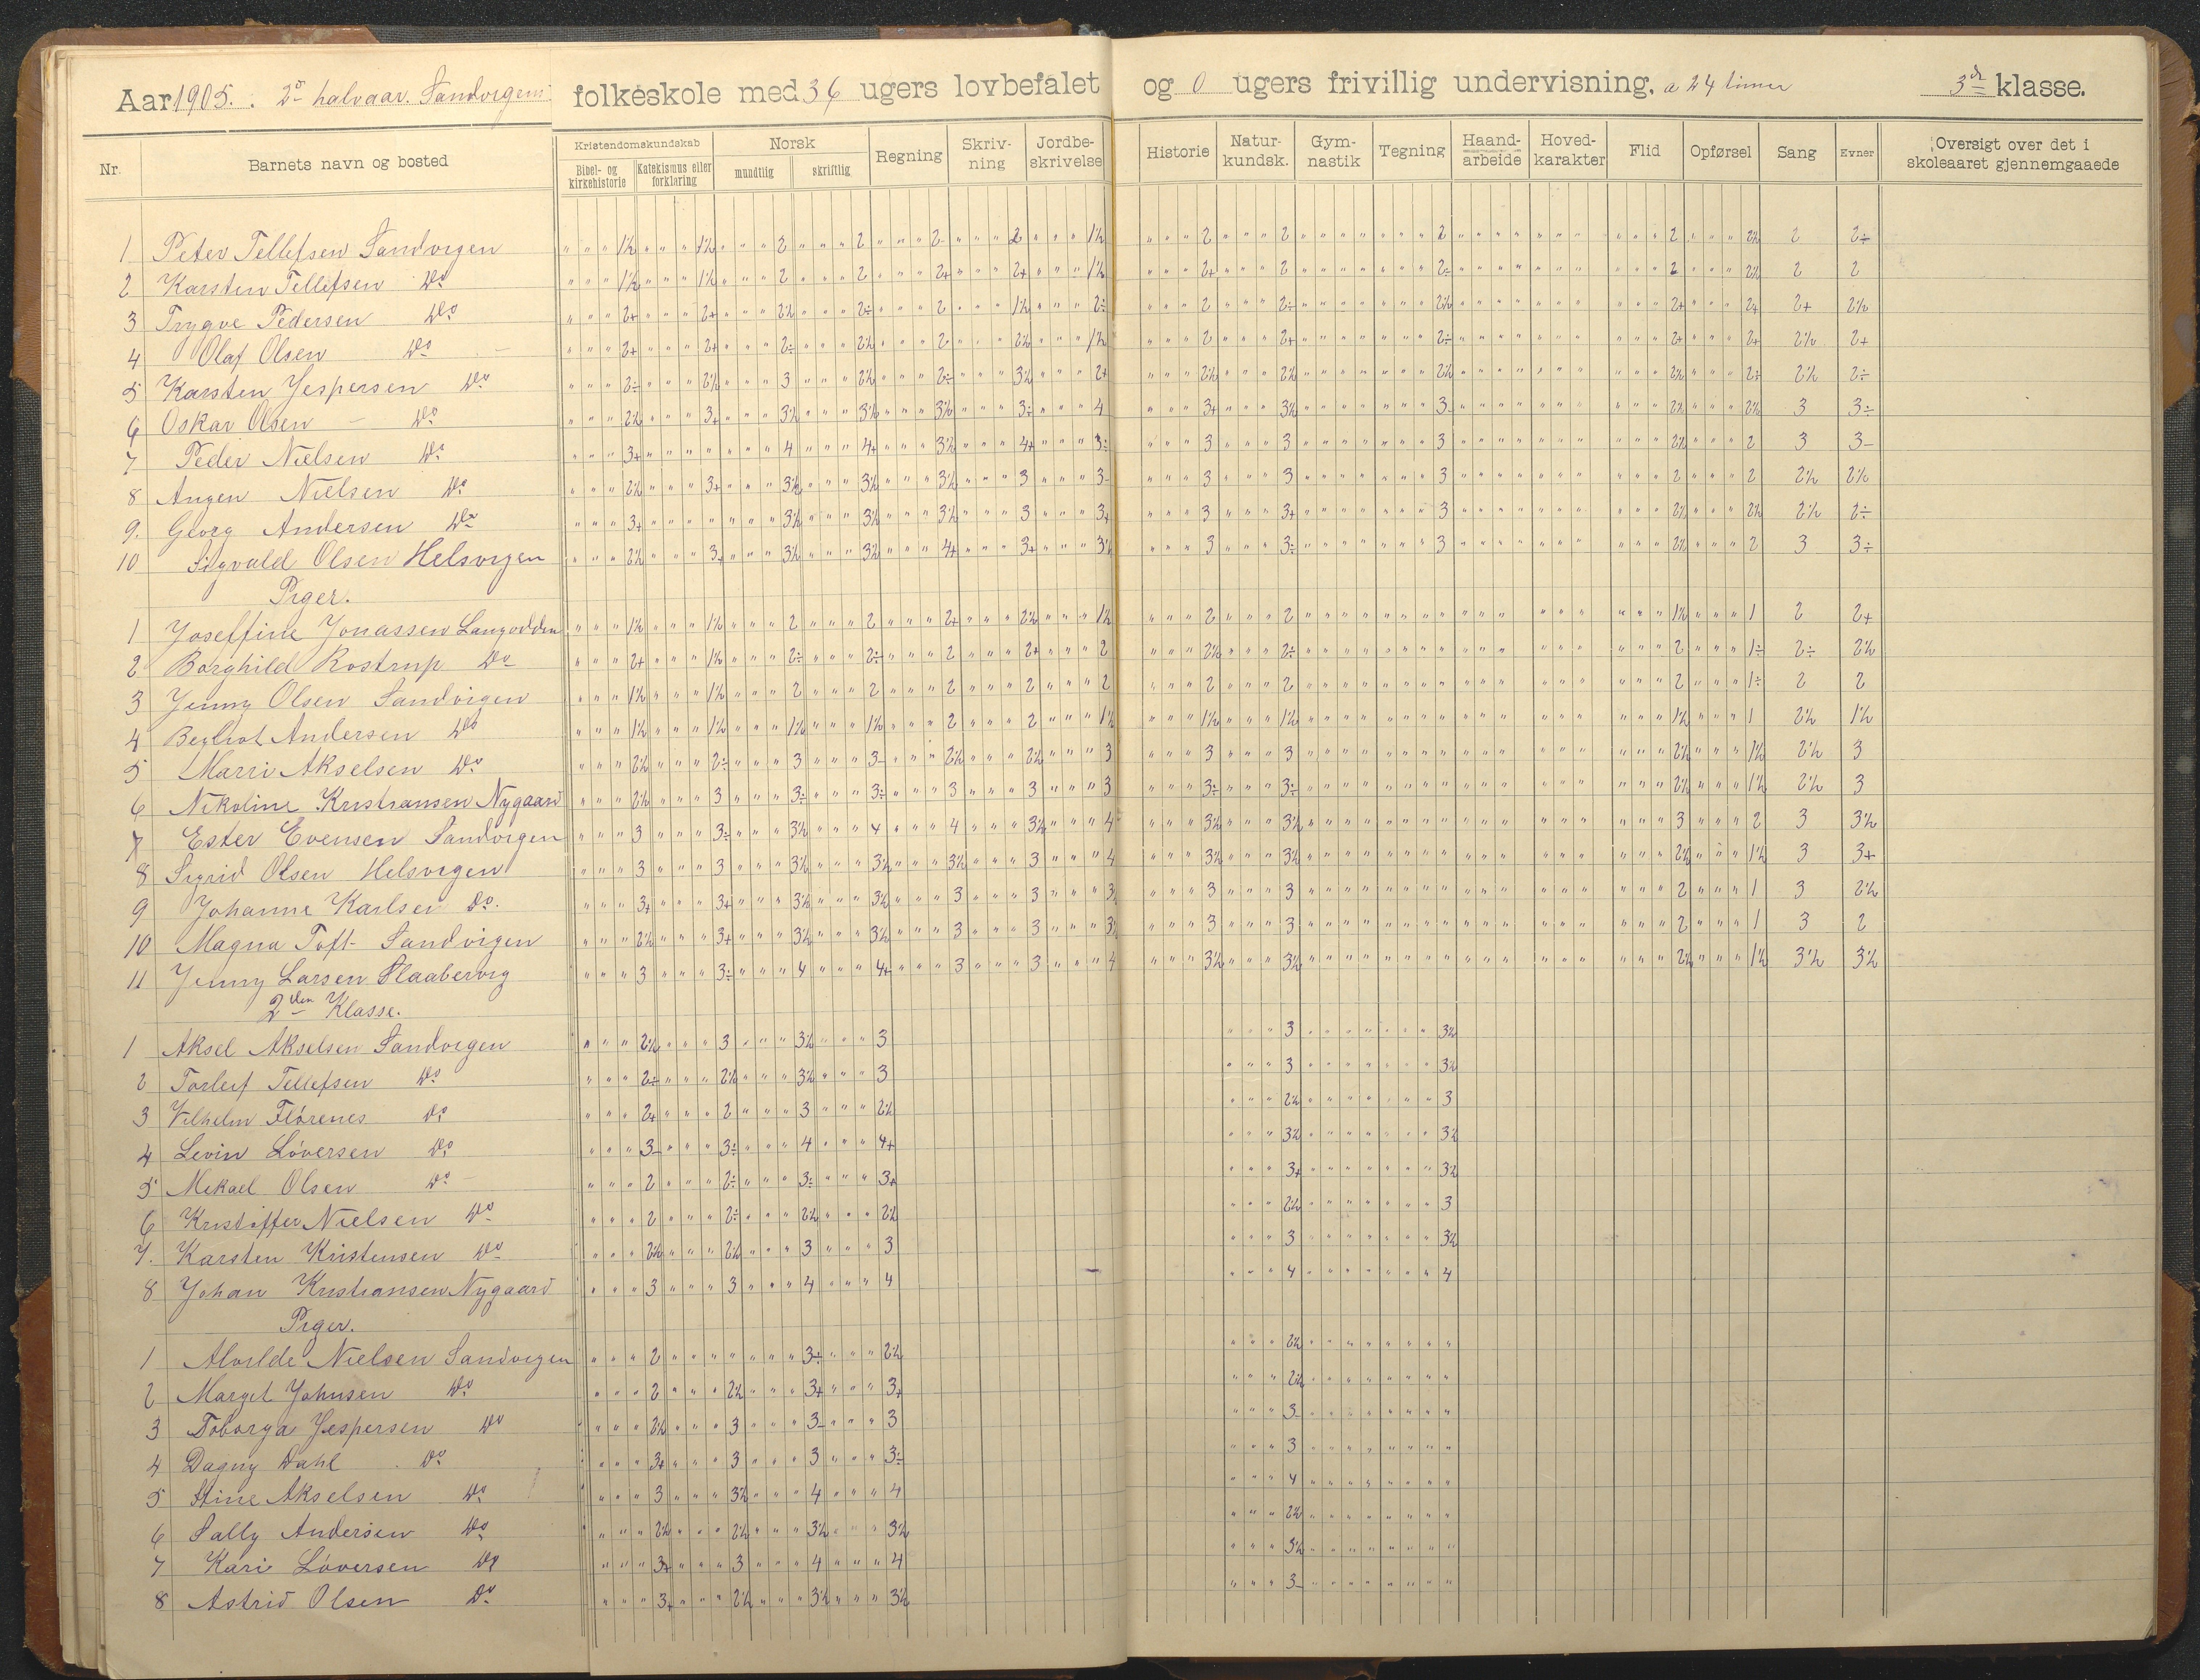 Aar 1905. 2d halvaar. Sandvigens folkeskole med 36 ugers lovbefalet og 0 ugers frivillig undervisning, a 24 timer 3d klasse.
Nr. Barnets navn og bosted Kristendomskundskab Norsk Regning Skriv-ning Jordbe-skrivelse Historie Natur-kundsk. Gym-nastik Tegning Haand-arbeide Hoved-karakter Flid Opførsel Sang Evner Oversigt over det i skoleaaret gjennemgaaede
Bibel- og kirkehistorie Katekismus eller forklaring mundtlig skriftlig
1 Peter Tellefsen Sandvigen 1½ 1½ 2 2 2 2 1½ 2 2 2 2 2½ 2 2÷
2 Karsten Tellefsen Do 1½ 1½ 2 2 2+ 2+ 1½ 2+ 2 2÷ 2 2½ 2 2
3 Trygve Pedersen Do 2+ 2+ 2½ 2÷ 2 1½ 2÷ 2 2÷ 2½ 2+ 2+ 2+ 2½
4 Olaf Olsen Do 2+ 2+ 2÷ 2½ 2 2½ 1½ 2 2+ 2÷ 2+ 2+ 2½ 2+
5 Karsten Jespersen Do 2÷ 2½ 3 2½ 2÷ 3½ 2+ 2½ 2½ 2½ 2½ 2÷ 2½ 2÷
6 Oskar Olsen Do 2½ 3+ 3½ 3½ 3½ 3÷ 4 3+ 3½ 3 2½ 2½ 3 3÷
7 Peder Nielsen Do 3+ 4 4+ 3½ 4+ 3÷ 3 3 3 2½ 2 3 3-
8 Angen Nielsen Do 2½ 3+ 3½ 3½ 3½ 3 3- 3 3 3 2 2 2½ 2½
9. Georg Andersen Do 3+ 3½ 3½ 3½ 3 3+ 3 3+ 3 2½ 2½ 2½ 2÷
10 Sigvald Olsen Helsvigen 2½ 3+ 3½ 3½ 4+ 3+ 3½ 3 3÷ 3 2½ 2 3 3÷
Piger.
1 Joseffine Jonassen Langodden 1½ 1½ 2 2 2+ 2½ 1½ 2 2 1½ 1 2 2+
2 Borghild Rostrup Do 2+ 1½ 2÷ 2÷ 2 2+ 2 2½ 2÷ 2 1÷ 2÷ 2½
3 Jenny Olsen Sandvigen 1½ 1½ 2 2 2 2 2 2 2 2 1÷ 2 2
4 Bergliot Andersen Do 1½ 1½ 1½ 1½ 2 2 1½ 1½ 1½ 1½ 1 2½ 1½
5 Marri Akselsen Do 2½ 2÷ 3 3- 2½ 2½ 3 3 3 2½ 1½ 2½ 3
6 Nikoline Kristiansen Nygaard 2½ 3 3÷ 3÷ 3 3 3 3÷ 3÷ 2½ 1½ 2½ 3
7 Ester Evensen Sandvigen 3 3÷ 3½ 4 4 3½ 4 3½ 3½ 3 2 3 3½
8 Sigrid Olsen Helsvigen 3 3 3½ 3½ 3½ 3 4 3½ 3½ 2½ 1½ 3 3+
9 Johanne Karlsen Do. 3+ 3+ 3½ 3½ 3 3 3 3 3 2 1 3 2½
10 Magna Toft Sandvigen 2½ 3+ 3½ 3½ 3 3 3½ 3 3 2 1 3 2
11 Jenny Larsen Slaabervig 3 3÷ 4 4+ 3 3 4 3½ 3½ 2½ 1½ 3½ 3½
2den Klasse.
1 Aksel Akselsen Sandvigen 2½ 3 3½ 3 3 3½
2 Torleif Tellefsen Do 2÷ 2½ 3½ 3 3 3½
3 Vilhelm Flörenes Do 2+ 2 3 2½ 2½ 3
4 Levin Löversen Do 3- 3÷ 4 4+ 3½ 3½
5 Mekael Olsen Do 2 2÷ 3÷ 3+ 3+ 3½
6 Kristoffer Nielsen Do 2 2÷ 2½ 2½ 2½ 3
7. Karsten Kristensen Do 2½ 2½ 3 3 3 3½
8 Johan Kristiansen Nygaard 3 3 4 4 4 4
Piger.
1 Alvilde Nielsen Sandvigen 2 3÷ 2½ 2½
2 Margit Johnsen Do 2 2½ 3+ 3+ 2½
3 Toborga Jespersen Do 2½ 3 3- 3 3-
4 Dagny Dahl Do 3+ 3 3 3÷ 3
5 Stine Akselsen Do 3 3½ 4 4 4
6 Sally Andersen Do 2½ 2½ 3½ 3½ 2½
7 Kari Löversen Do 3+ 3 4 4 3½
8 Astrid Olsen Do 3+ 2½ 3½ 3½ 3-